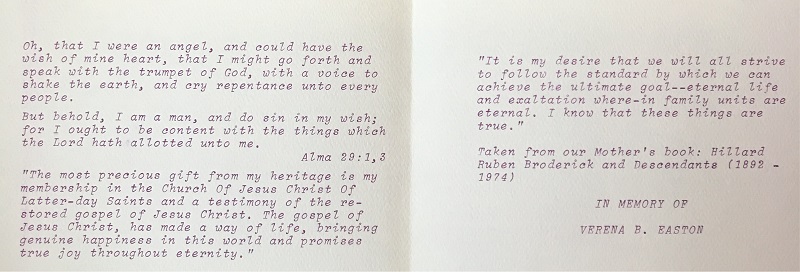 Oh, that I were an angel, and could have the
wish of mine heart, that I might go forth and
speak with the trumpet of God, with a voice to
shake the earth, and cry repentance unto every
people.
But behold, I am a man, and do sin in my wish;
for I ought to be content with the things which
the Lord hath allotted unto me.
Alma 29:1,3
"The most precious gift from my heritage is my
membership in the Church Of Jesus Christ Of
Latter-day Saints and a testimony of the re-
stored gospel of Jesus Christ. The gospel of
Jesus Christ, has made a way of life, bringing
genuine happiness in this world and promises
true joy throughout eternity."
"It is my desire that we will all strive
to follow the standard by which we can
achieve the ultimate goal--eternal life
and exaltation where-in family units are
eternal. I know that these things are
true."
Taken from our Mother's book: Hillard
Ruben Broderick and Descendants (1892 -
1974)
IN MEMORY OF
VERENA B. EASTON